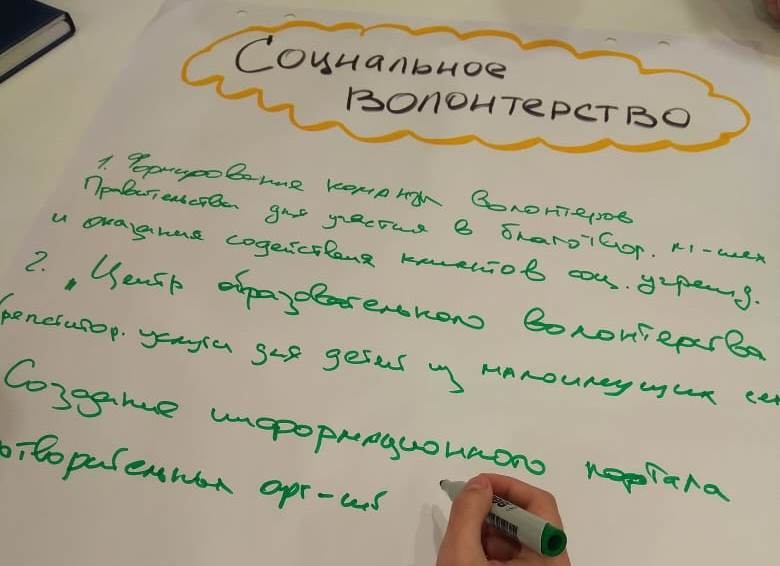 Социальное
волонтерство
1. Формирование команды волонтеров
Правительства для участия в благотвор. м-иях
и оказания содействия клиентов соц. учрежд.
2. "Центр образовательного волонтерства
репетитор. услуги для детей из малоимущих сем
Создание информационного портала
отворительных орг-ий